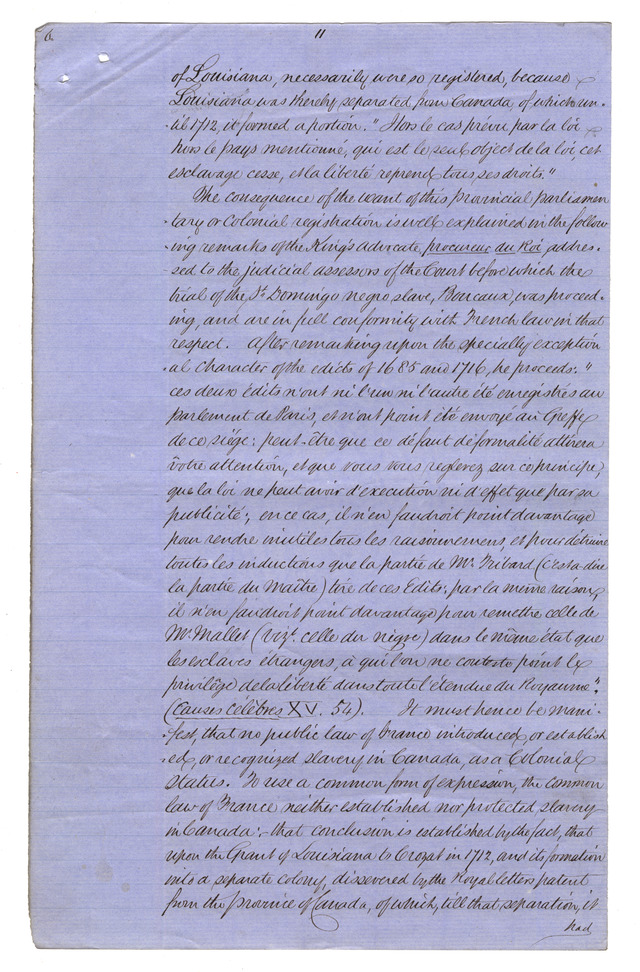 6. 11
of Louisiana, necessarily were so registered, because
Louisiana was thereby separated from Canada, of which un-
-til 1712, it formed a portion. "Hors le cas prévu par la loi
hors le pays mentionné, qui est le seul object de la loi, cet
esclavage cesse, et la liberté reprend tous ses droits."
The consequence of the want of this Provincial parliamen
tary or Colonial registration is well explained in the follow
-ing remarks of the King's advocate, procureur du Roi, addres-
sed to the judicial assessors of the Court before which the
trial of the St. Domingo negro, slave, Boucaux, was proceed-
ing, and are in full conformity with French law in that
respect. After remarking upon the specially exception
-al character of the edicts of 1685 and 1716, he proceeds: "
ces deux édits n'ont ni l'un ni l'autre été enregistrés au
parlement de Paris, et n'ont point été envoyé au Greffe
de ce siége: peut-être que ce défaut de formalité attirera
vôtre attention, et que vous vous reglerez sur ce principe,
que la loi ne peut avoir d'execution ni d'effet que par sa
publicité; en ce cas, il n'en faudroit point davantage
pour rendre inutiles tous les raisonnemens, et pour détruire
toutes les inductions que la partie de Mr. Tribard (c'est a-dire
la partie du Maître) tire de ces Edits: par la même raison
il n'en faudroit point davantage pour remettre celle de
Mr. Mallet (vizt. celle du nègre) dans le même état que
les esclaves étrangers, à qui l'on ne conteste point le
privilége de la liberté dans toute l'étendue du Royaume".
(Causes célèbres XV. 54). It must hence be mani-
-fest, that no public law of France introduced, or establish
-ed, or recognized slavery in Canada, as a Colonial
status. To use a common form of expression, the common
law of France neither established nor protected, slavery
in Canada:- that conclusion is established by the fact, that
upon the Grant of Louisiana to Crozat in 1712, and its formation
into a separate colony, dissevered by the Royal letters patent
from the province of Canada, of which, till that separation, it
had